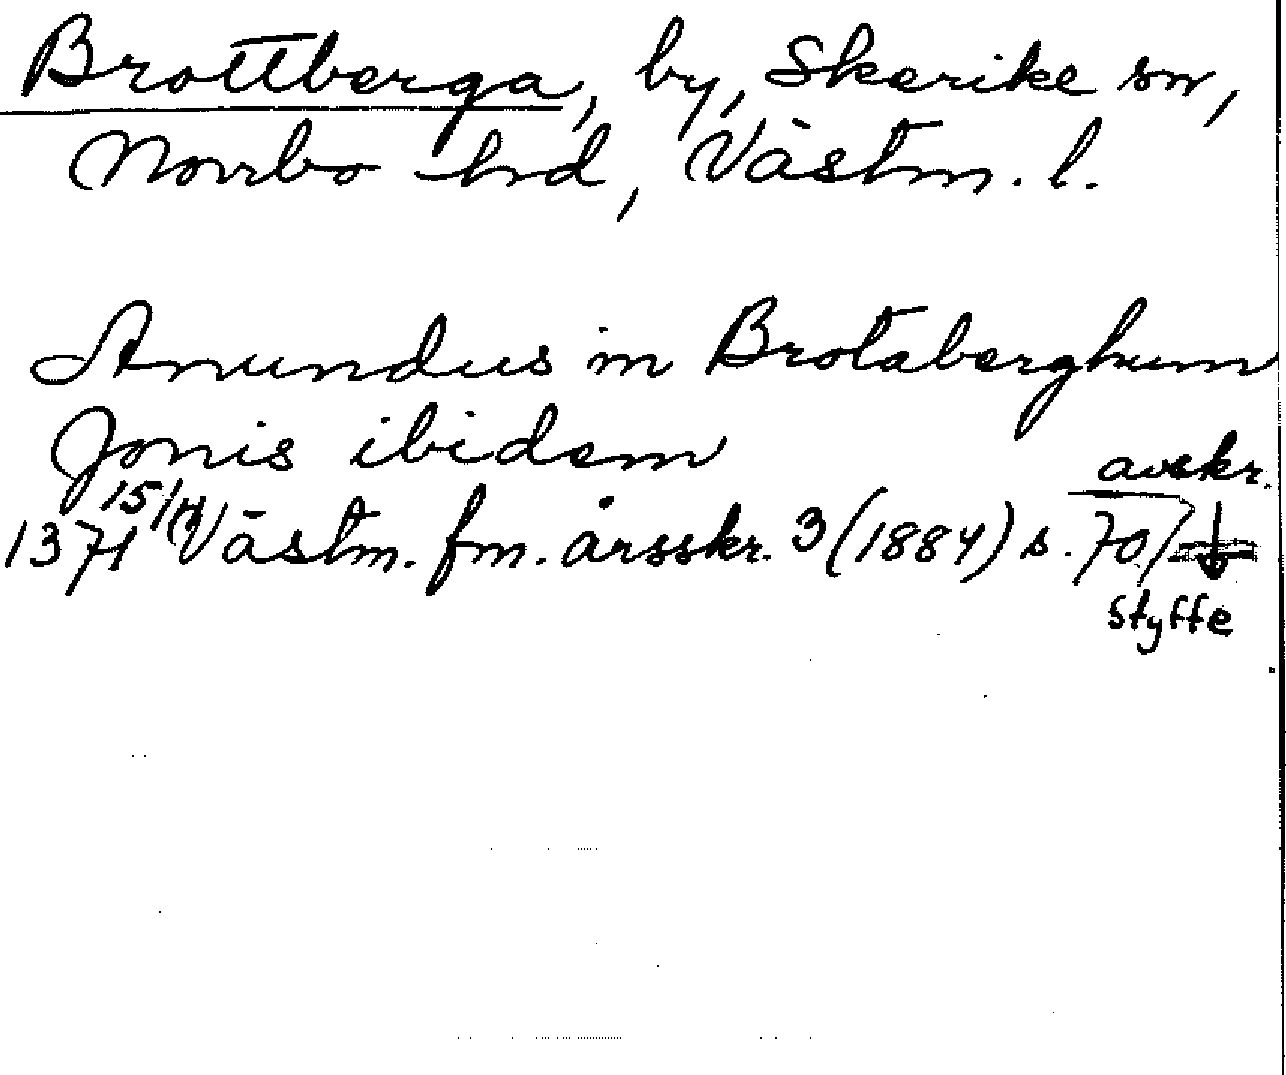 Brottberga, by, Skerike sn,
Norrbo hd, Västm. l.
Anundus in Brotaberghum
Jonis ibidem
avskr.
1371 15/11 Västm. fm. årsskr. 3 (1884) s. 70
Styffe